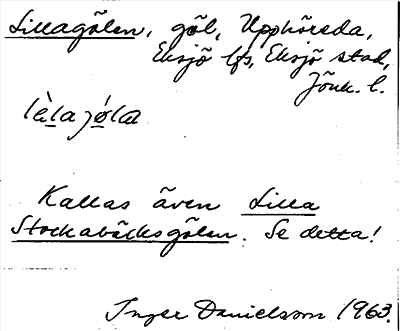 Lillagölen, göl, Upphöreda,
Eksjö lfs, Eksjö stad,
Jönk. l.
lèlajǿla
Kallas även Lilla
Stockabäcksgölen. Se detta!
Inger Danielsson 1963.